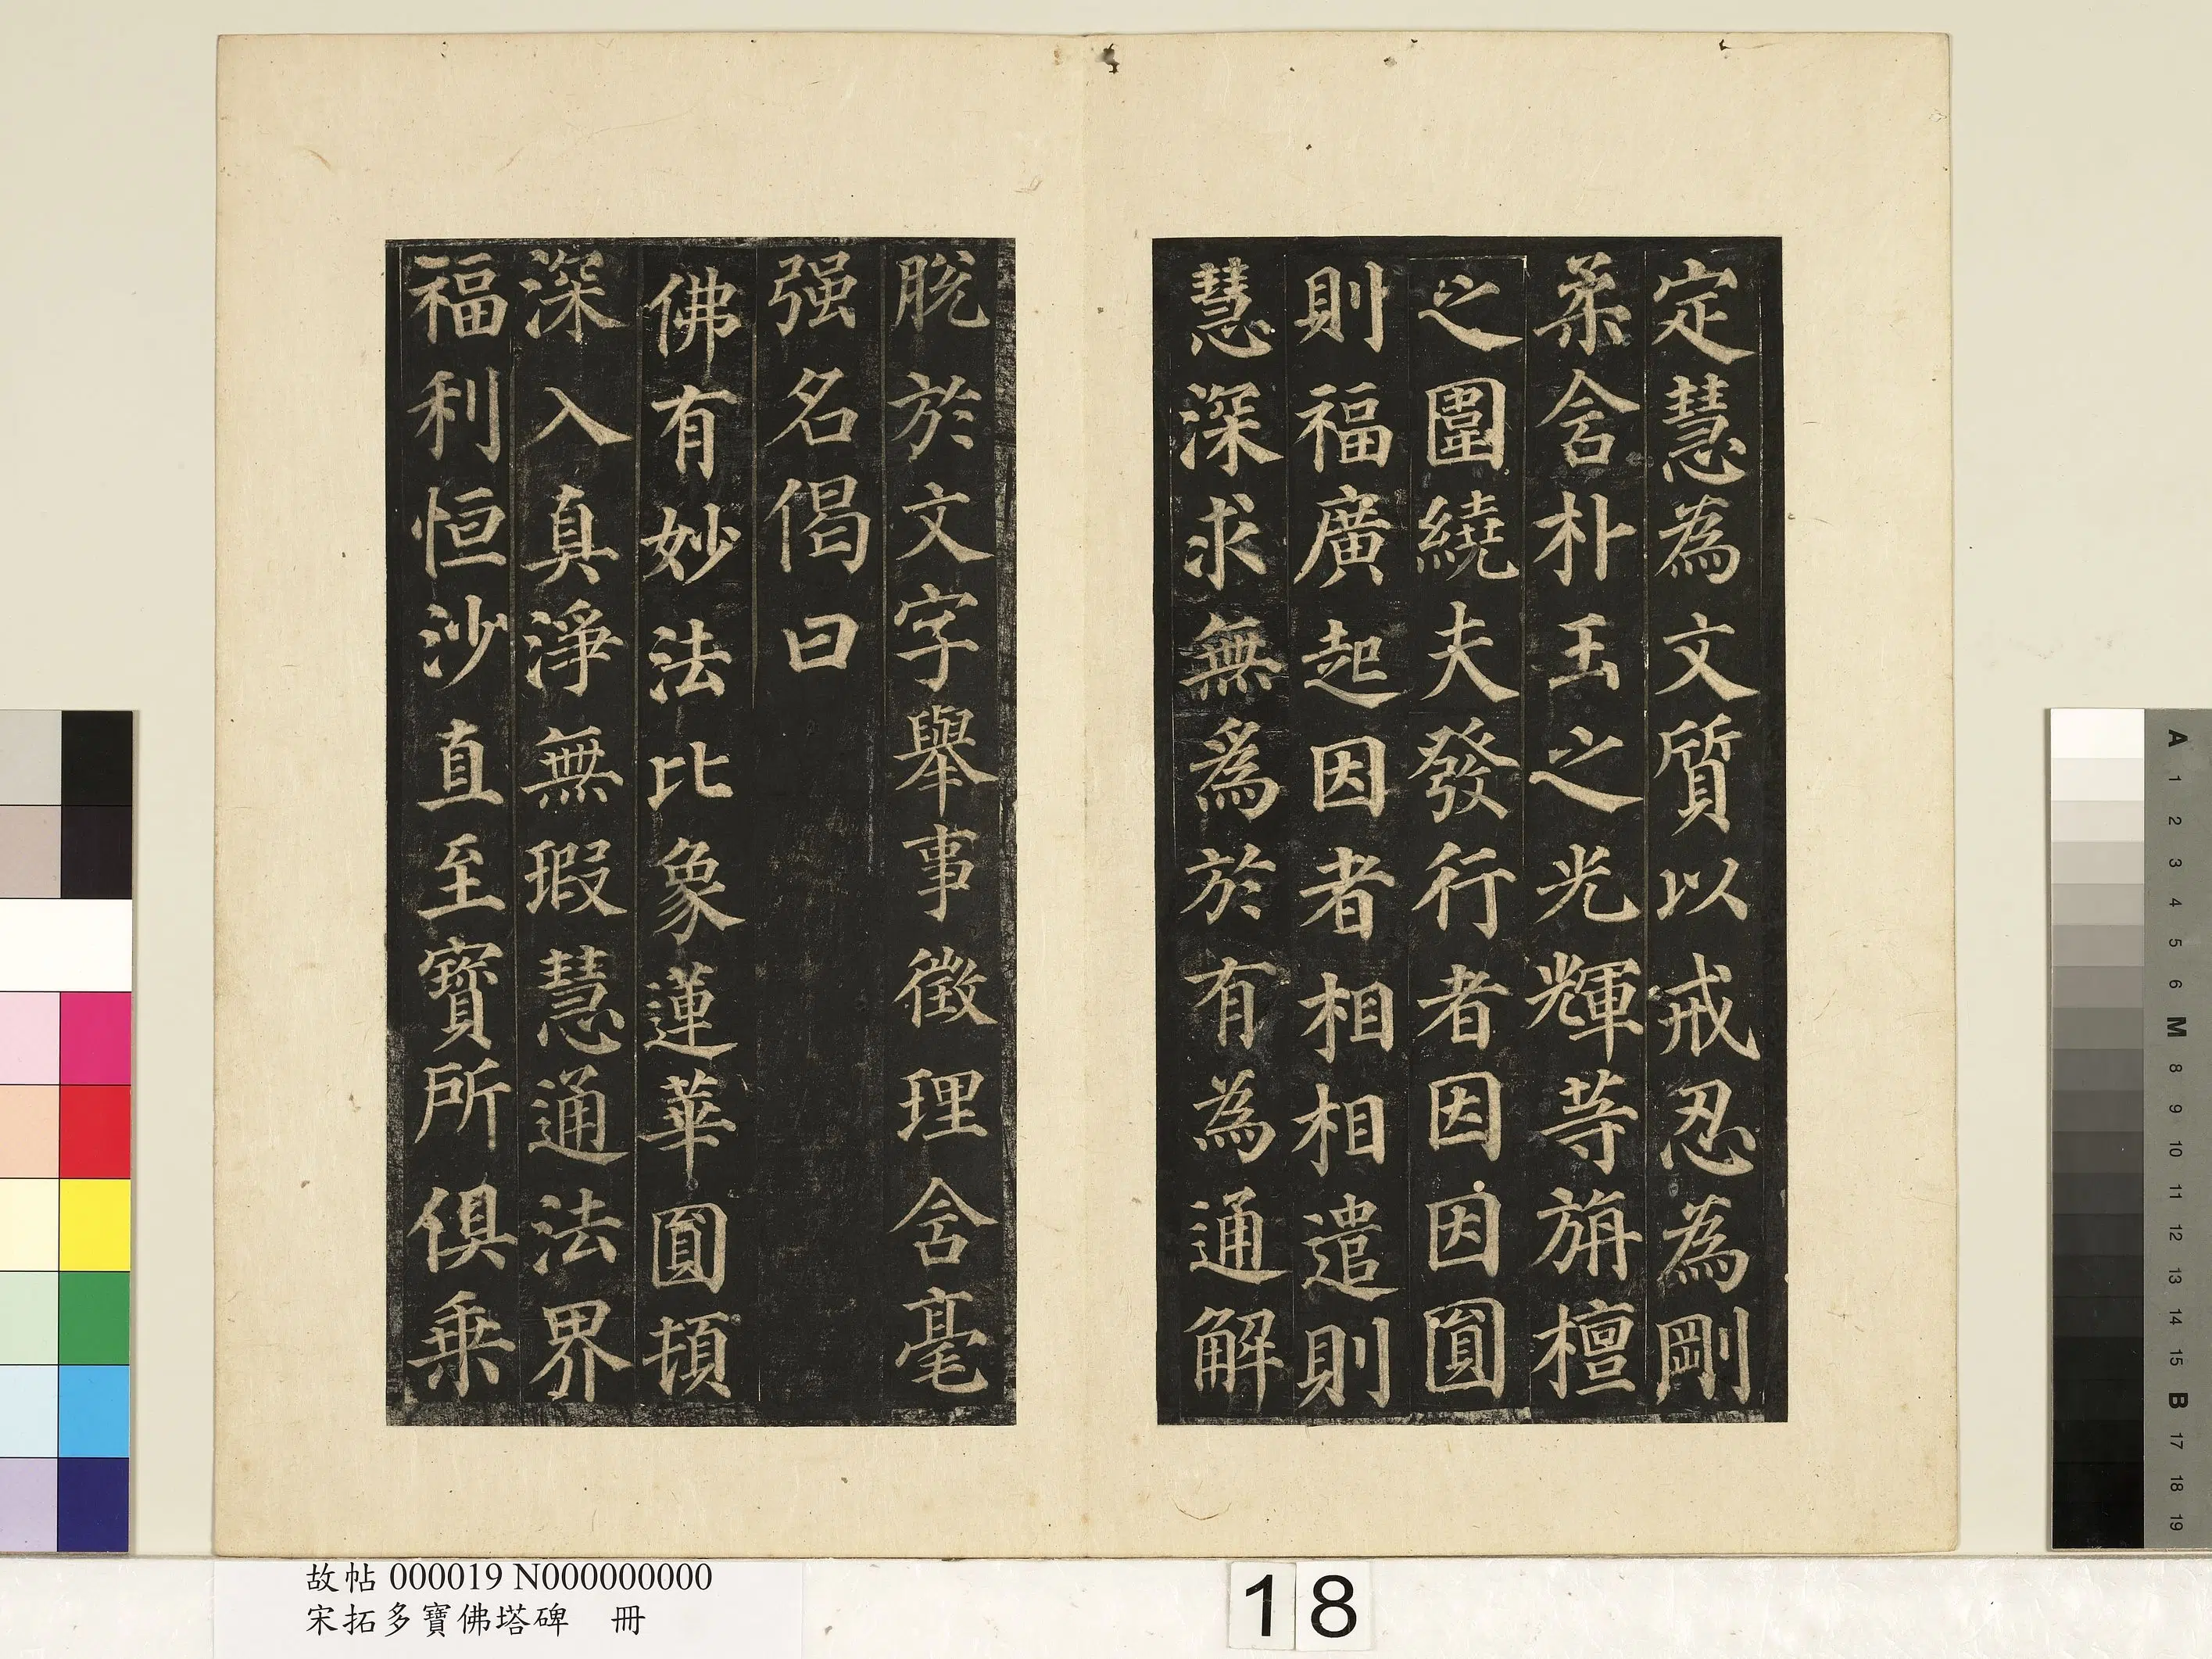 定慧為文質以戒忍為剛
柔含朴玉之光輝等旃檀
之圍繞夫發行者因因圓
則福廣起因者相相遣則
慧深求無為於有為通解
脫於文字舉事徵理含毫
强名偈曰
佛有妙法比象蓮華圓頓
深入真淨無瑕慧通法界
福利恒沙直至寶所俱乗
故帖 000019 N000000000
宋拓多寶佛塔碑 冊
18
A
1
2
3
4
5
6
M
8
9
10
11
12
13
14
15
B
17
18
19